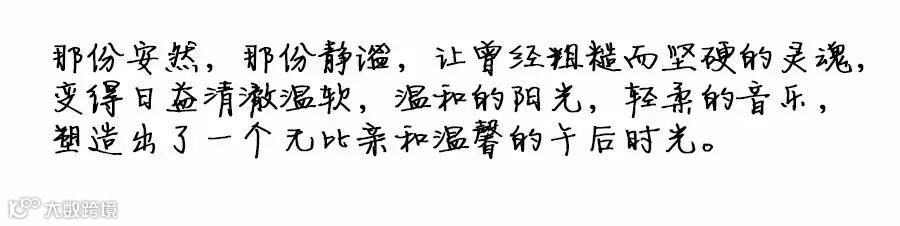 那份安然，那份静谧，让曾经粗糙而坚硬的灵魂，
变得日益清澈温软，温和的阳光，轻柔的音乐，
塑造出了一个无比亲和温馨的午后时光。
大数跨境